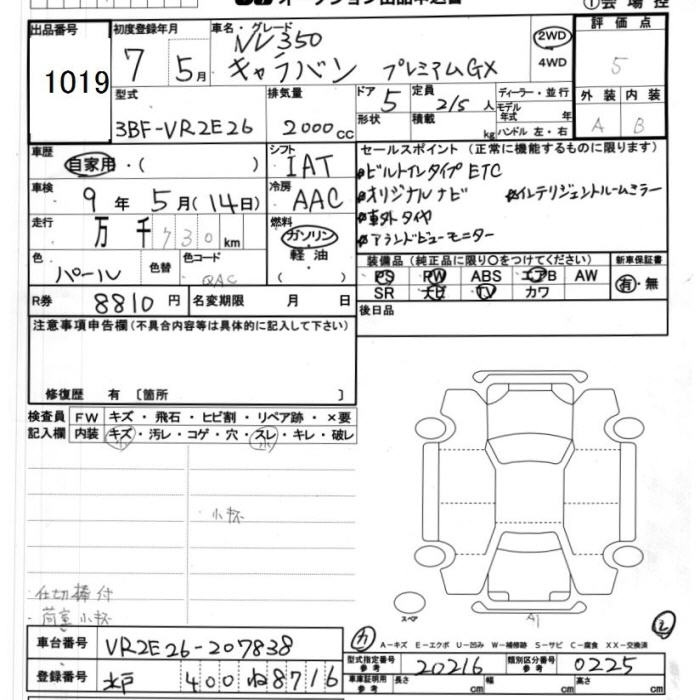 オークション出品申込書
①会場控
出品番号 初度登録年月 車名・グレード 評価点
1019 7 5月 NV350 キャラバン プレミアムGX 2WD 4WD 5
型式 排気量 ドア 定員 ディーラー・並行 外装 内装
3BF-VR2E26 2000cc 5 2/5人 モデル年式 年 A B
形状 積載 kg ハンドル 左・右
車歴 シフト セールスポイント（正常に機能するものに限ります）
自家用・（ ） IAT ビルトインタイプETC
車検 9年 5月（14日） 冷房 AAC オリジナルナビ インテリジェントルームミラー
走行 万 千 730km 燃料 ガソリン 車外タイヤ
軽油 （ ） アラウンドビューモニター
色 パール 色替 色コード QAC
装備品（純正品に限り○をつけてください） 新車保証書
PS PW ABS エアB AW 有・無
SR ナビ TV カワ
R券 8810円 名変期限 月 日
後日品
注意事項申告欄（不具合内容等は具体的に記入して下さい）
修復歴 有〔箇所 〕
検査員 FW キズ・飛石・ヒビ割・リペア跡・×要
記入欄 内装 キズ・汚レ・コゲ・穴・スレ・キレ・破レ
小 小
小杯
仕切棒付
荷室小杯
スペア
A1
カ
A-キズ E-エクボ U-凹み W-補修跡 S-サビ C-腐食 XX-交換済
車台番号 VR2E26-207838
型式指定番号 参考 20216 類別区分番号 参考 0225
登録番号 水戸 400 ね 8716
車庫証明用 参考 長さ cm 幅 cm 高さ cm